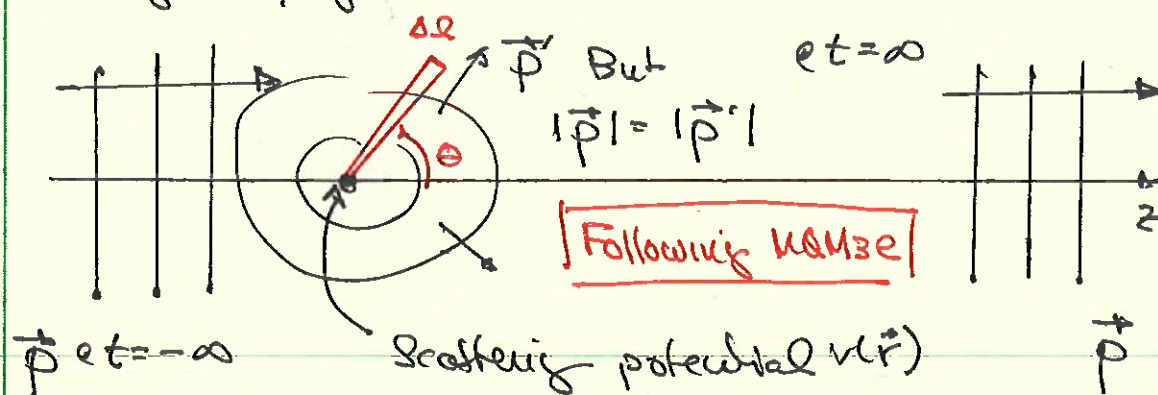 ΔΩ
p⃗' But @ t=∞
|p⃗| = |p⃗'|
θ
z
Following MQM3e
p⃗ @ t=-∞ Scattering potential v(r⃗) p⃗